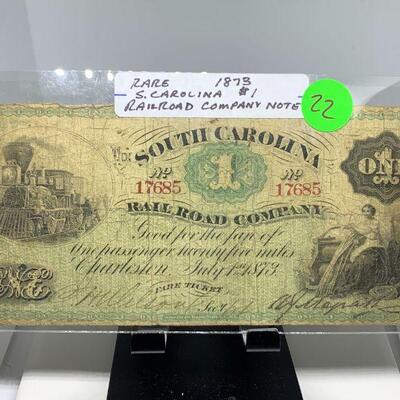 RARE 1873
S. CAROLINA #1
RAILROAD COMPANY NOTE
22
SOUTH CAROLINA
No 1 No ONE
17685 17685
RAIL ROAD COMPANY
Good for the fare of
One passenger twenty five miles
Charleston July 1st 1873
FARE TICKET
ONE
Sec'y